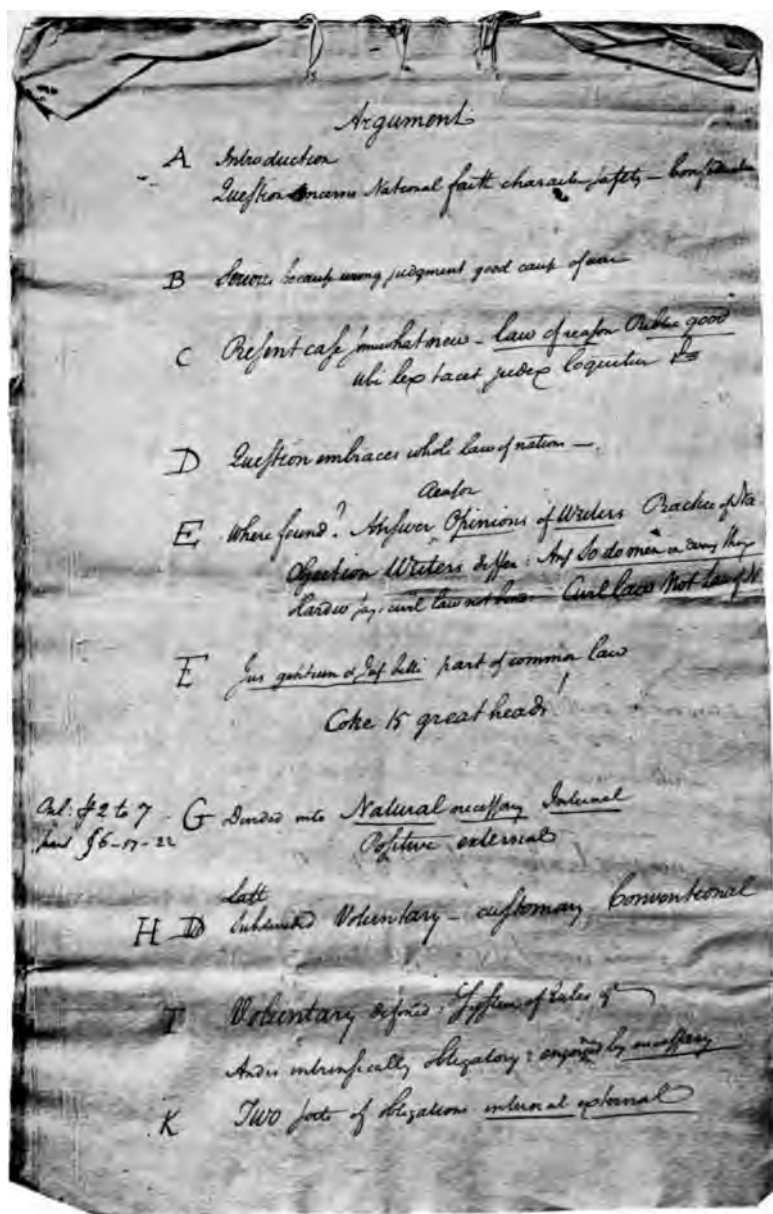 Argument
A Introduction
Question concerns National faith character safety —
B Serious because wrong judgment good cause of war
C Present case somewhat new — law of reason Public good
ubi lex tacet judex loquitur
D Question embraces whole law of nations —
Reason
E Where found? Answer Opinions of Writers Practice of
Objection Writers differ: Ans So do men in every thing
civil law not Civil law Not Law of N
E Jus gentium & Jus belli part of common law
Coke 15 great heads!
2 to 7 G Divided into Natural necessary Internal
§ 6-17-22 Positive external
Latt
H D Subdivided Voluntary — customary Conventional
I Voluntary defined: System of rules
And is intrinsically obligatory: by necessary
K Two sorts of obligations internal external